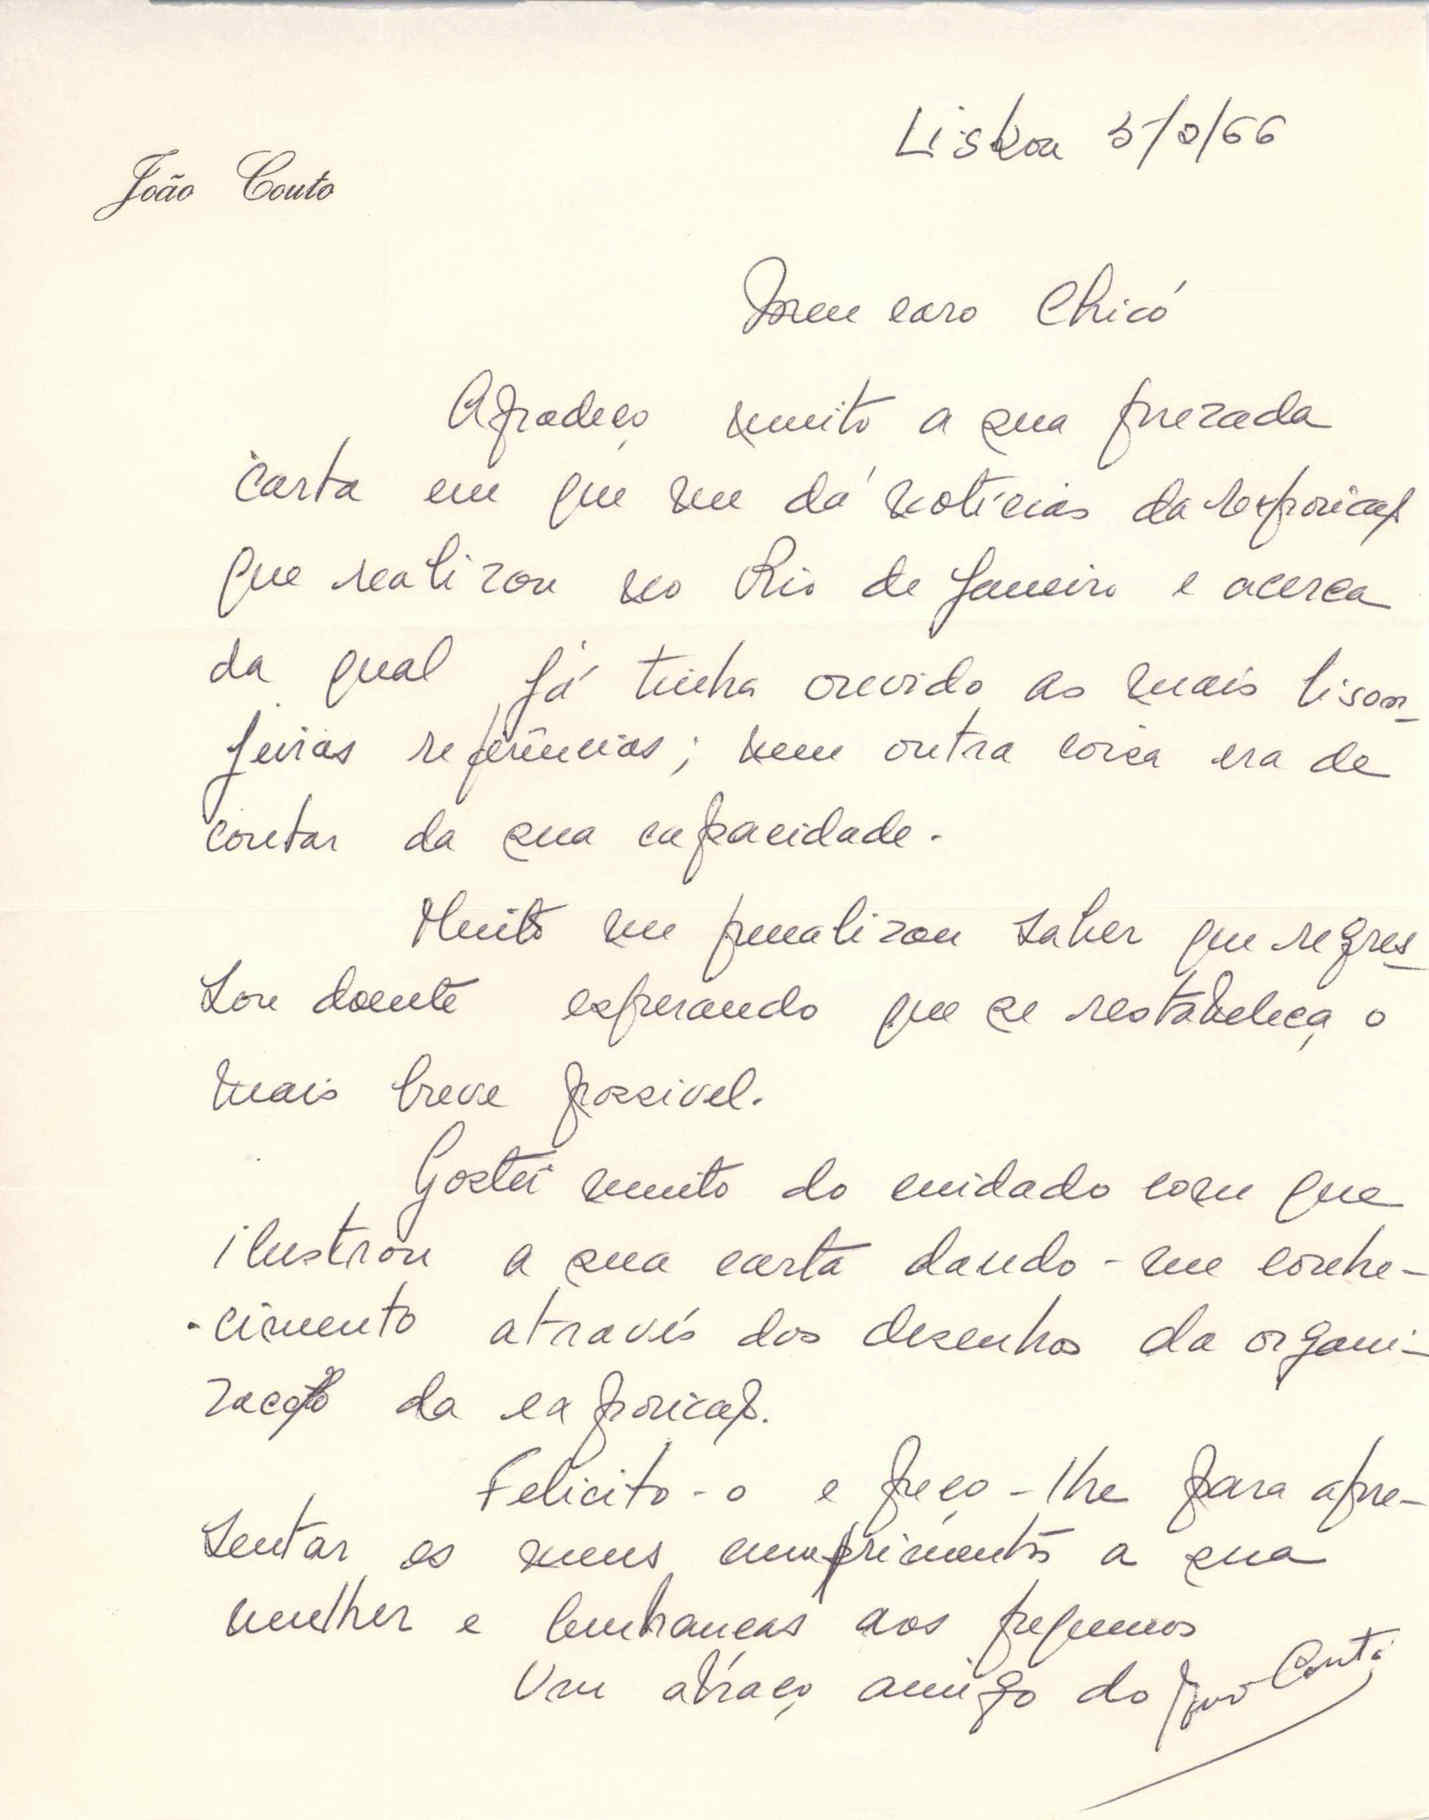 João Couto
Lisboa 5/8/66
Meu caro Chicó
Agradeço muito a sua prezada
carta em que me dá notícias da exposição
que realizou no Rio de Janeiro e acerca
da qual já tinha ouvido as mais lison-
jeiras referências; nem outra coisa era de
contar da sua capacidade.
Muito me penalizou saber que regres-
sou doente esperando que se restabeleça o
mais breve possivel.
Gostei muito do cuidado com que
ilustrou a sua carta dando-me conhe-
-cimento através dos desenhos da organi-
zação da exposição.
Felicito-o e peço-lhe para apre-
sentar os meus cumprimentos a sua
mulher e lembranças aos pequenos
Um abraço amigo do João Couto